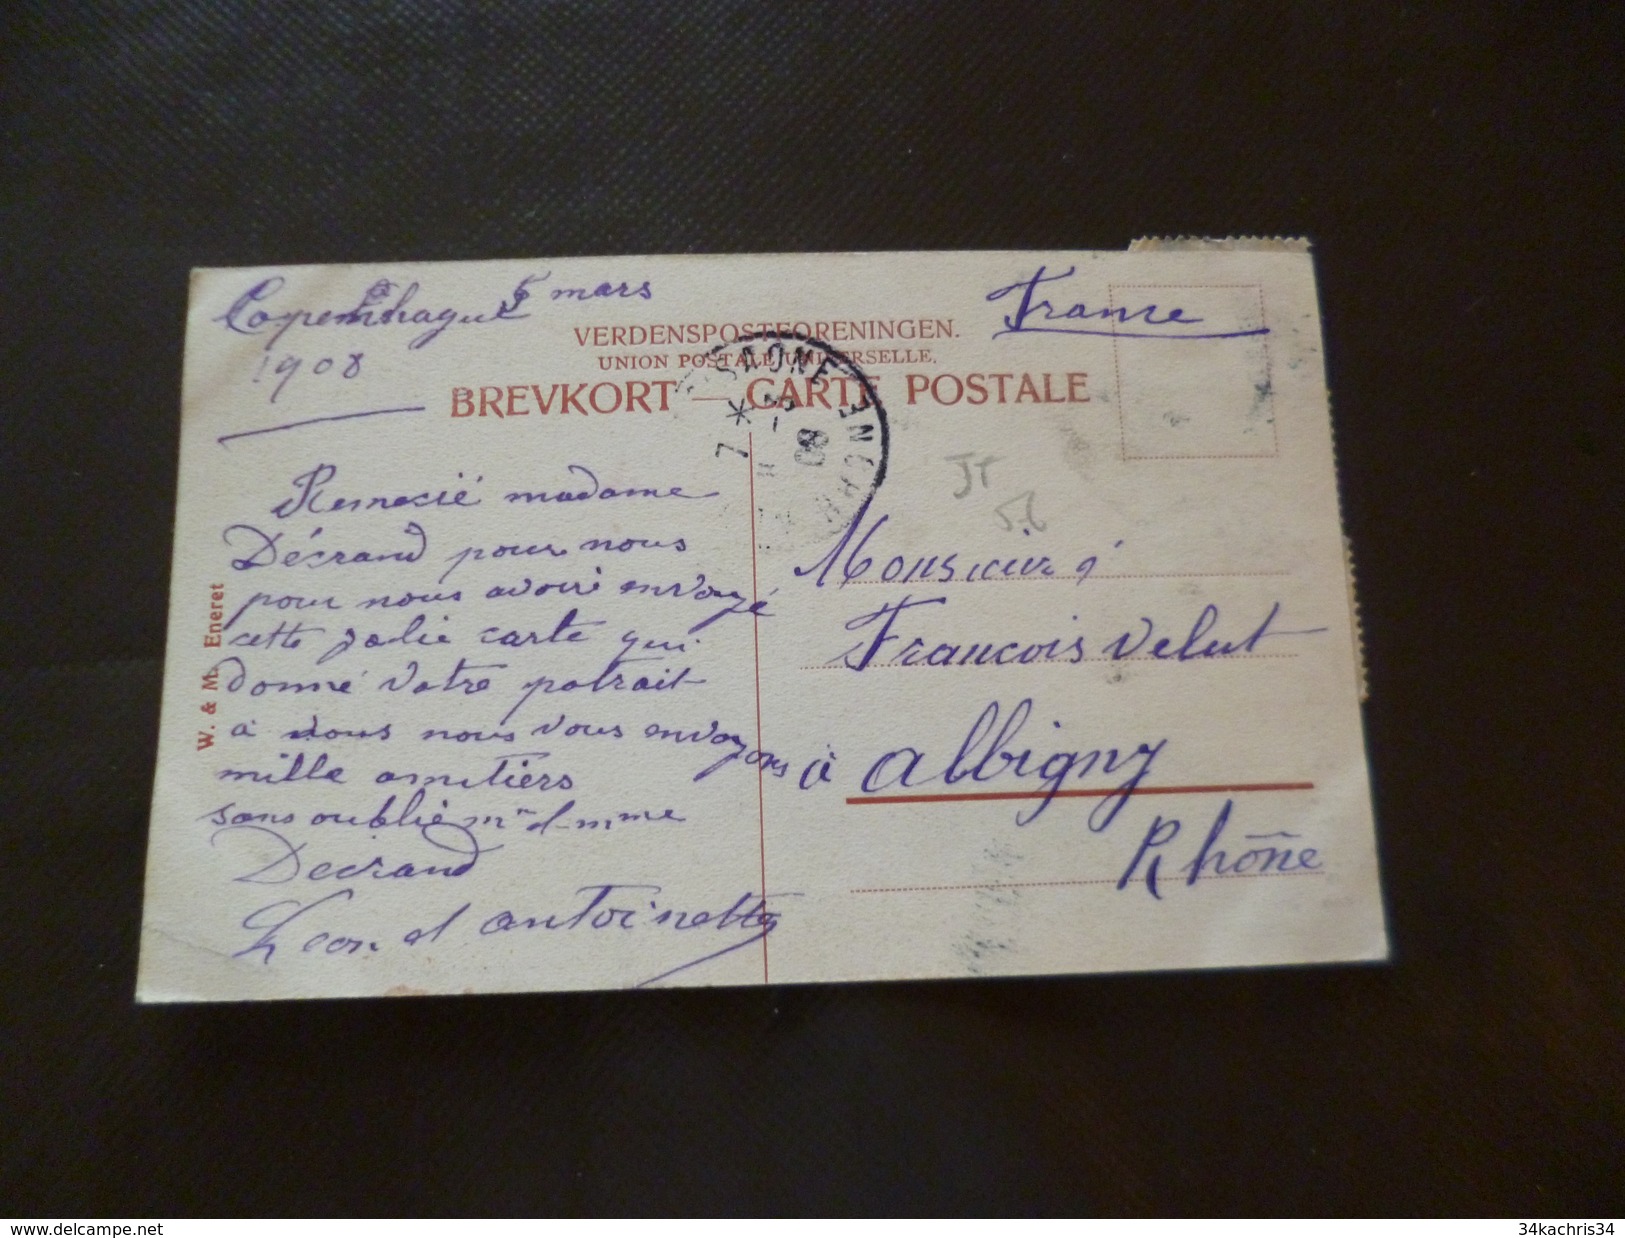 Copenhague 5 mars
1908
VERDENSPOSTFORENINGEN.
UNION POSTALE UNIVERSELLE.
BREVKORT — CARTE POSTALE
France
SAONE
7 *
08
RHONE
JT
Remercié madame
Décrand pour nous
pour nous avoire envoyé
cette jolie carte qui
donné votre potrait
a nous nous vous envoyons
mille amitiers
sans oublié mr et mme
Decrand
Leon et antoinette
W. & M. Eneret
Monsieur
Francois Velut
à albigny
Rhône
www.delcampe.net
34kachris34